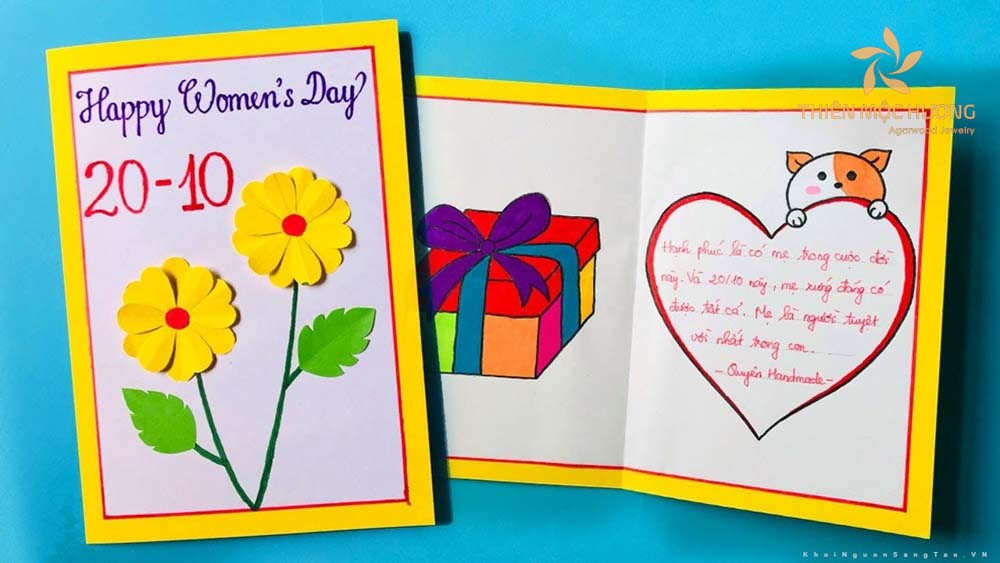 Happy Women's Day
20-10
THIÊN MỘC HƯƠNG
Agarwood Jewelry
Hạnh phúc là có mẹ trong cuộc đời
này. Và 20/10 này, mẹ xứng đáng có
được tất cả. Mẹ là người tuyệt
vời nhất trong con.
- Quyên Handmade -
KhoiNguonSangTao.VN